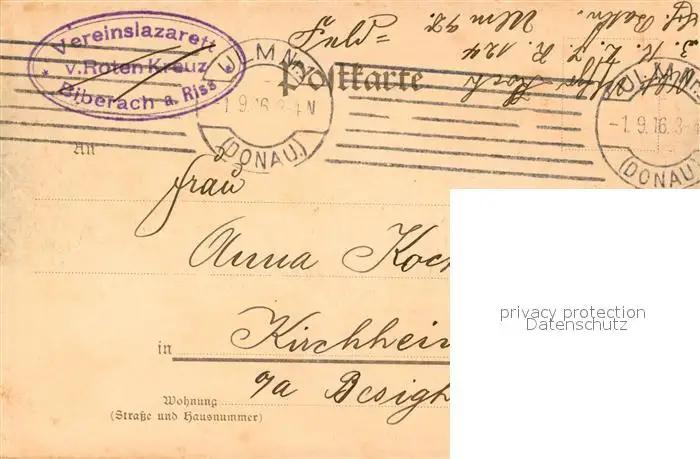 Vereinslazarett
v. Roten Kreuz
Biberach a. Riss
ULM
-1.9.16.3-4N
(DONAU)
Postkarte
Feld=
Ulm
R. 124
Koch
ULM
-1.9.16.3
(DONAU)
An
Frau
Anna Koch
in Kirchheim
Besigh
Wohnung
(Straße und Hausnummer)
privacy protection
Datenschutz